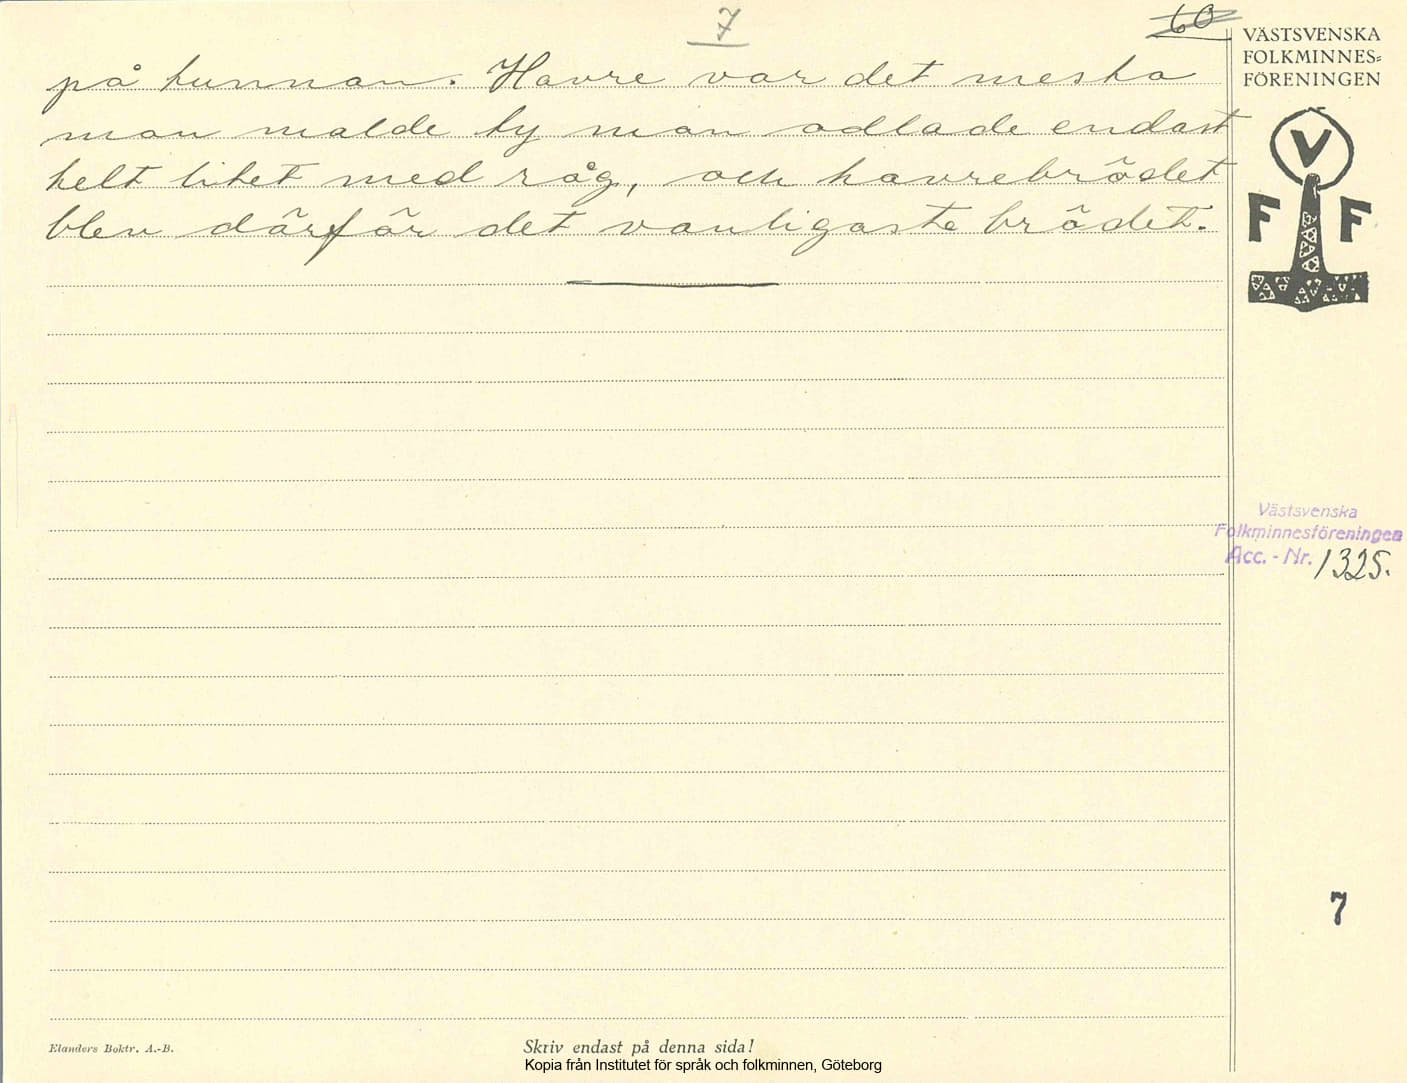 7
60
på tunnan. Havre var det mesta
man malde ty man odlade endast
helt litet med råg, och havrebrödet
blev därför det vanligaste brödet.
VÄSTSVENSKA
FOLKMINNES=
FÖRENINGEN
V
F F
Västsvenska
Folkminnesföreningen
Acc. - Nr. 1325.
7
Elanders Boktr. A.-B.
Skriv endast på denna sida!
Kopia från Institutet för språk och folkminnen, Göteborg